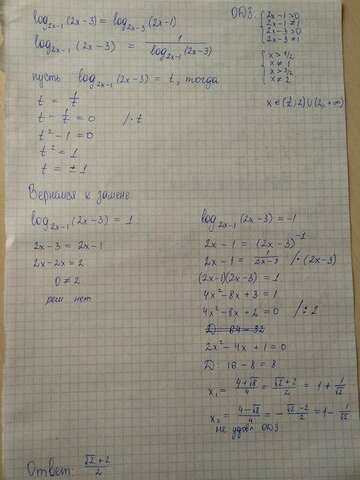 log₂ₓ₋₁(2x-3) = log₂ₓ₋₃(2x-1)
log₂ₓ₋₁(2x-3) = 1/log₂ₓ₋₁(2x-3)
ОДЗ:
{ 2x-1>0
2x-1≠1
2x-3>0
2x-3≠1
{ x>1/2
x≠1
x>3/2
x≠2
x∈(3/2; 2)∪(2; +∞)
пусть log₂ₓ₋₁(2x-3) = t, тогда
t = 1/t
t - 1/t = 0 /·t
t² - 1 = 0
t² = 1
t = ±1
Вернёмся к замене
log₂ₓ₋₁(2x-3) = 1
2x-3 = 2x-1
2x-2x = 2
0 ≠ 2
реш. нет
log₂ₓ₋₁(2x-3) = -1
2x-1 = (2x-3)⁻¹
2x-1 = 1/(2x-3) /·(2x-3)
(2x-1)(2x-3) = 1
4x²-8x+3 = 1
4x²-8x+2 = 0 /:2
D 64-32
2x²-4x+1 = 0
D: 16-8 = 8
x₁ = (4+√8)/4 = (√2+2)/2 = 1 + 1/√2
x₂ = (4-√8)/4 = -(√2-2)/2 = 1 - 1/√2
не удовл. ОДЗ
Ответ: (√2+2)/2